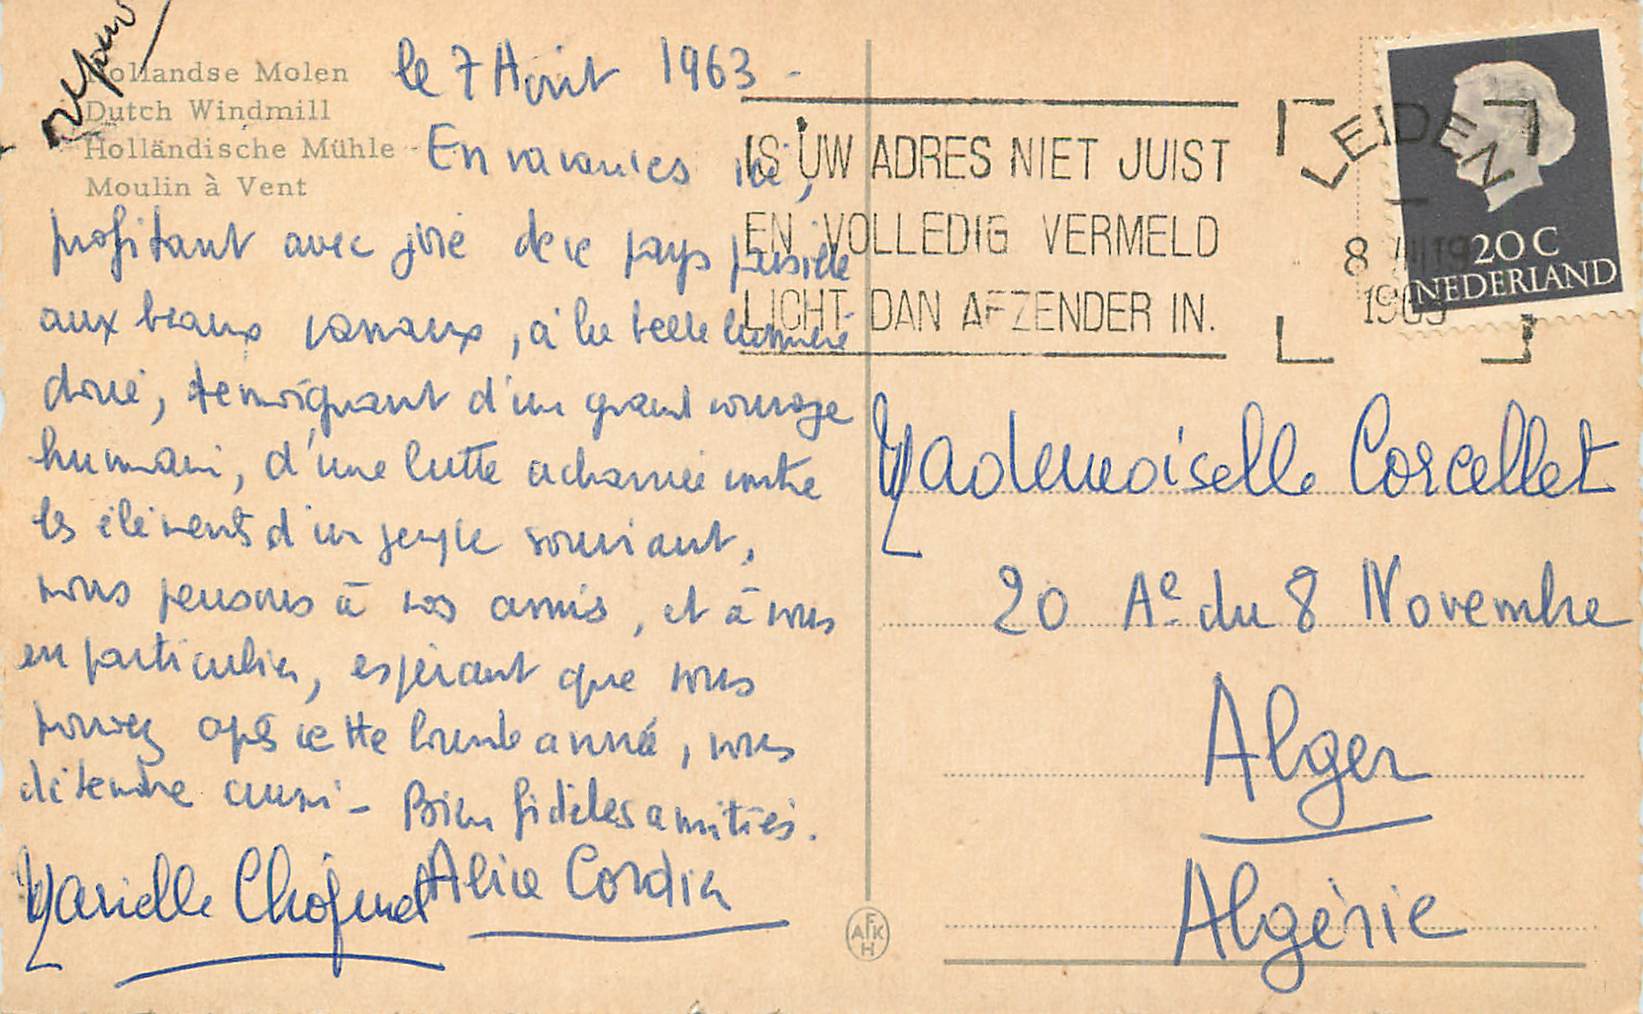 Hollandse Molen
Dutch Windmill
Holländische Mühle
Moulin à Vent
le 7 Août 1963 -
En vacances ici,
profitant avec joie de ce pays paisible
aux beaux canaux, à la belle lumière
dorée, témoignant d'un grand courage
humain, d'une lutte acharnée contre
les éléments d'un peuple souriant,
nous pensons à nos amis, et à vous
en particulier, espérant que vous
pouvez après cette lourde année, vous
détendre aussi - Bien fidèles amitiés.
Marielle Alice Cordier
IS UW ADRES NIET JUIST
EN VOLLEDIG VERMELD
LICHT DAN AFZENDER IN.
LEIDEN
8
1963
20 C
NEDERLAND
Mademoiselle Corcellet
20 Ae du 8 Novembre
Alger
Algérie
AFKH